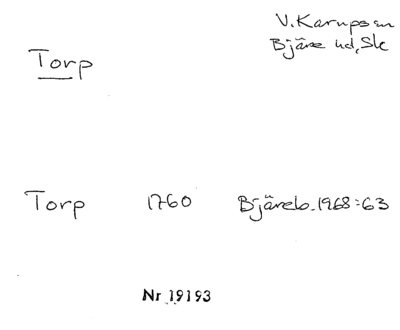 V. Karups sn
Bjäre hd, Sk
Torp
Torp 1760 Bjäreb. 1968:63
Nr 19193